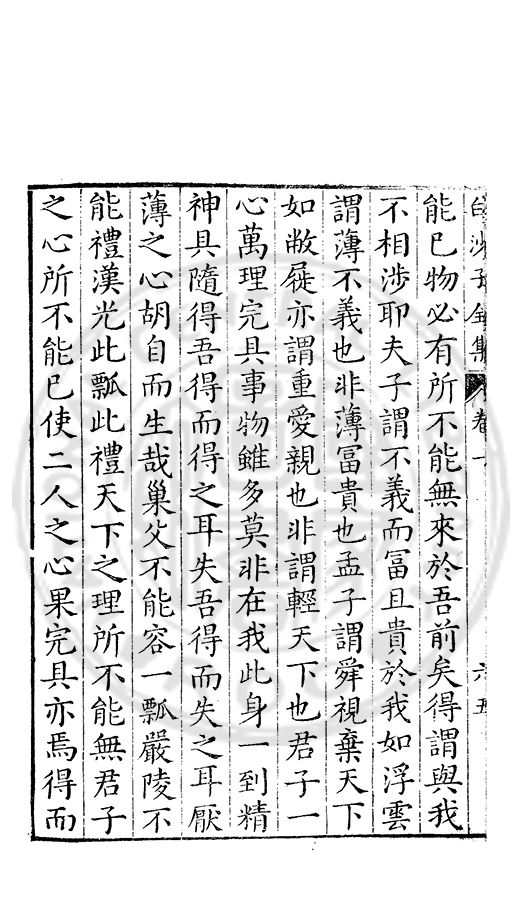 白沙子全集 卷 六五
能已物必有所不能無來於吾前矣得謂與我
不相涉耶夫子謂不義而冨且貴於我如浮雲
謂薄不義也非薄冨貴也孟子謂舜視棄天下
如敝屣亦謂重愛親也非謂輕天下也君子一
心萬理完具事物雖多莫非在我此身一到精
神具隨得吾得而得之耳失吾得而失之耳厭
薄之心胡自而生哉巢父不能容一瓢嚴陵不
能禮漢光此瓢此禮天下之理所不能無君子
之心所不能已使二人之心果完具亦焉得而